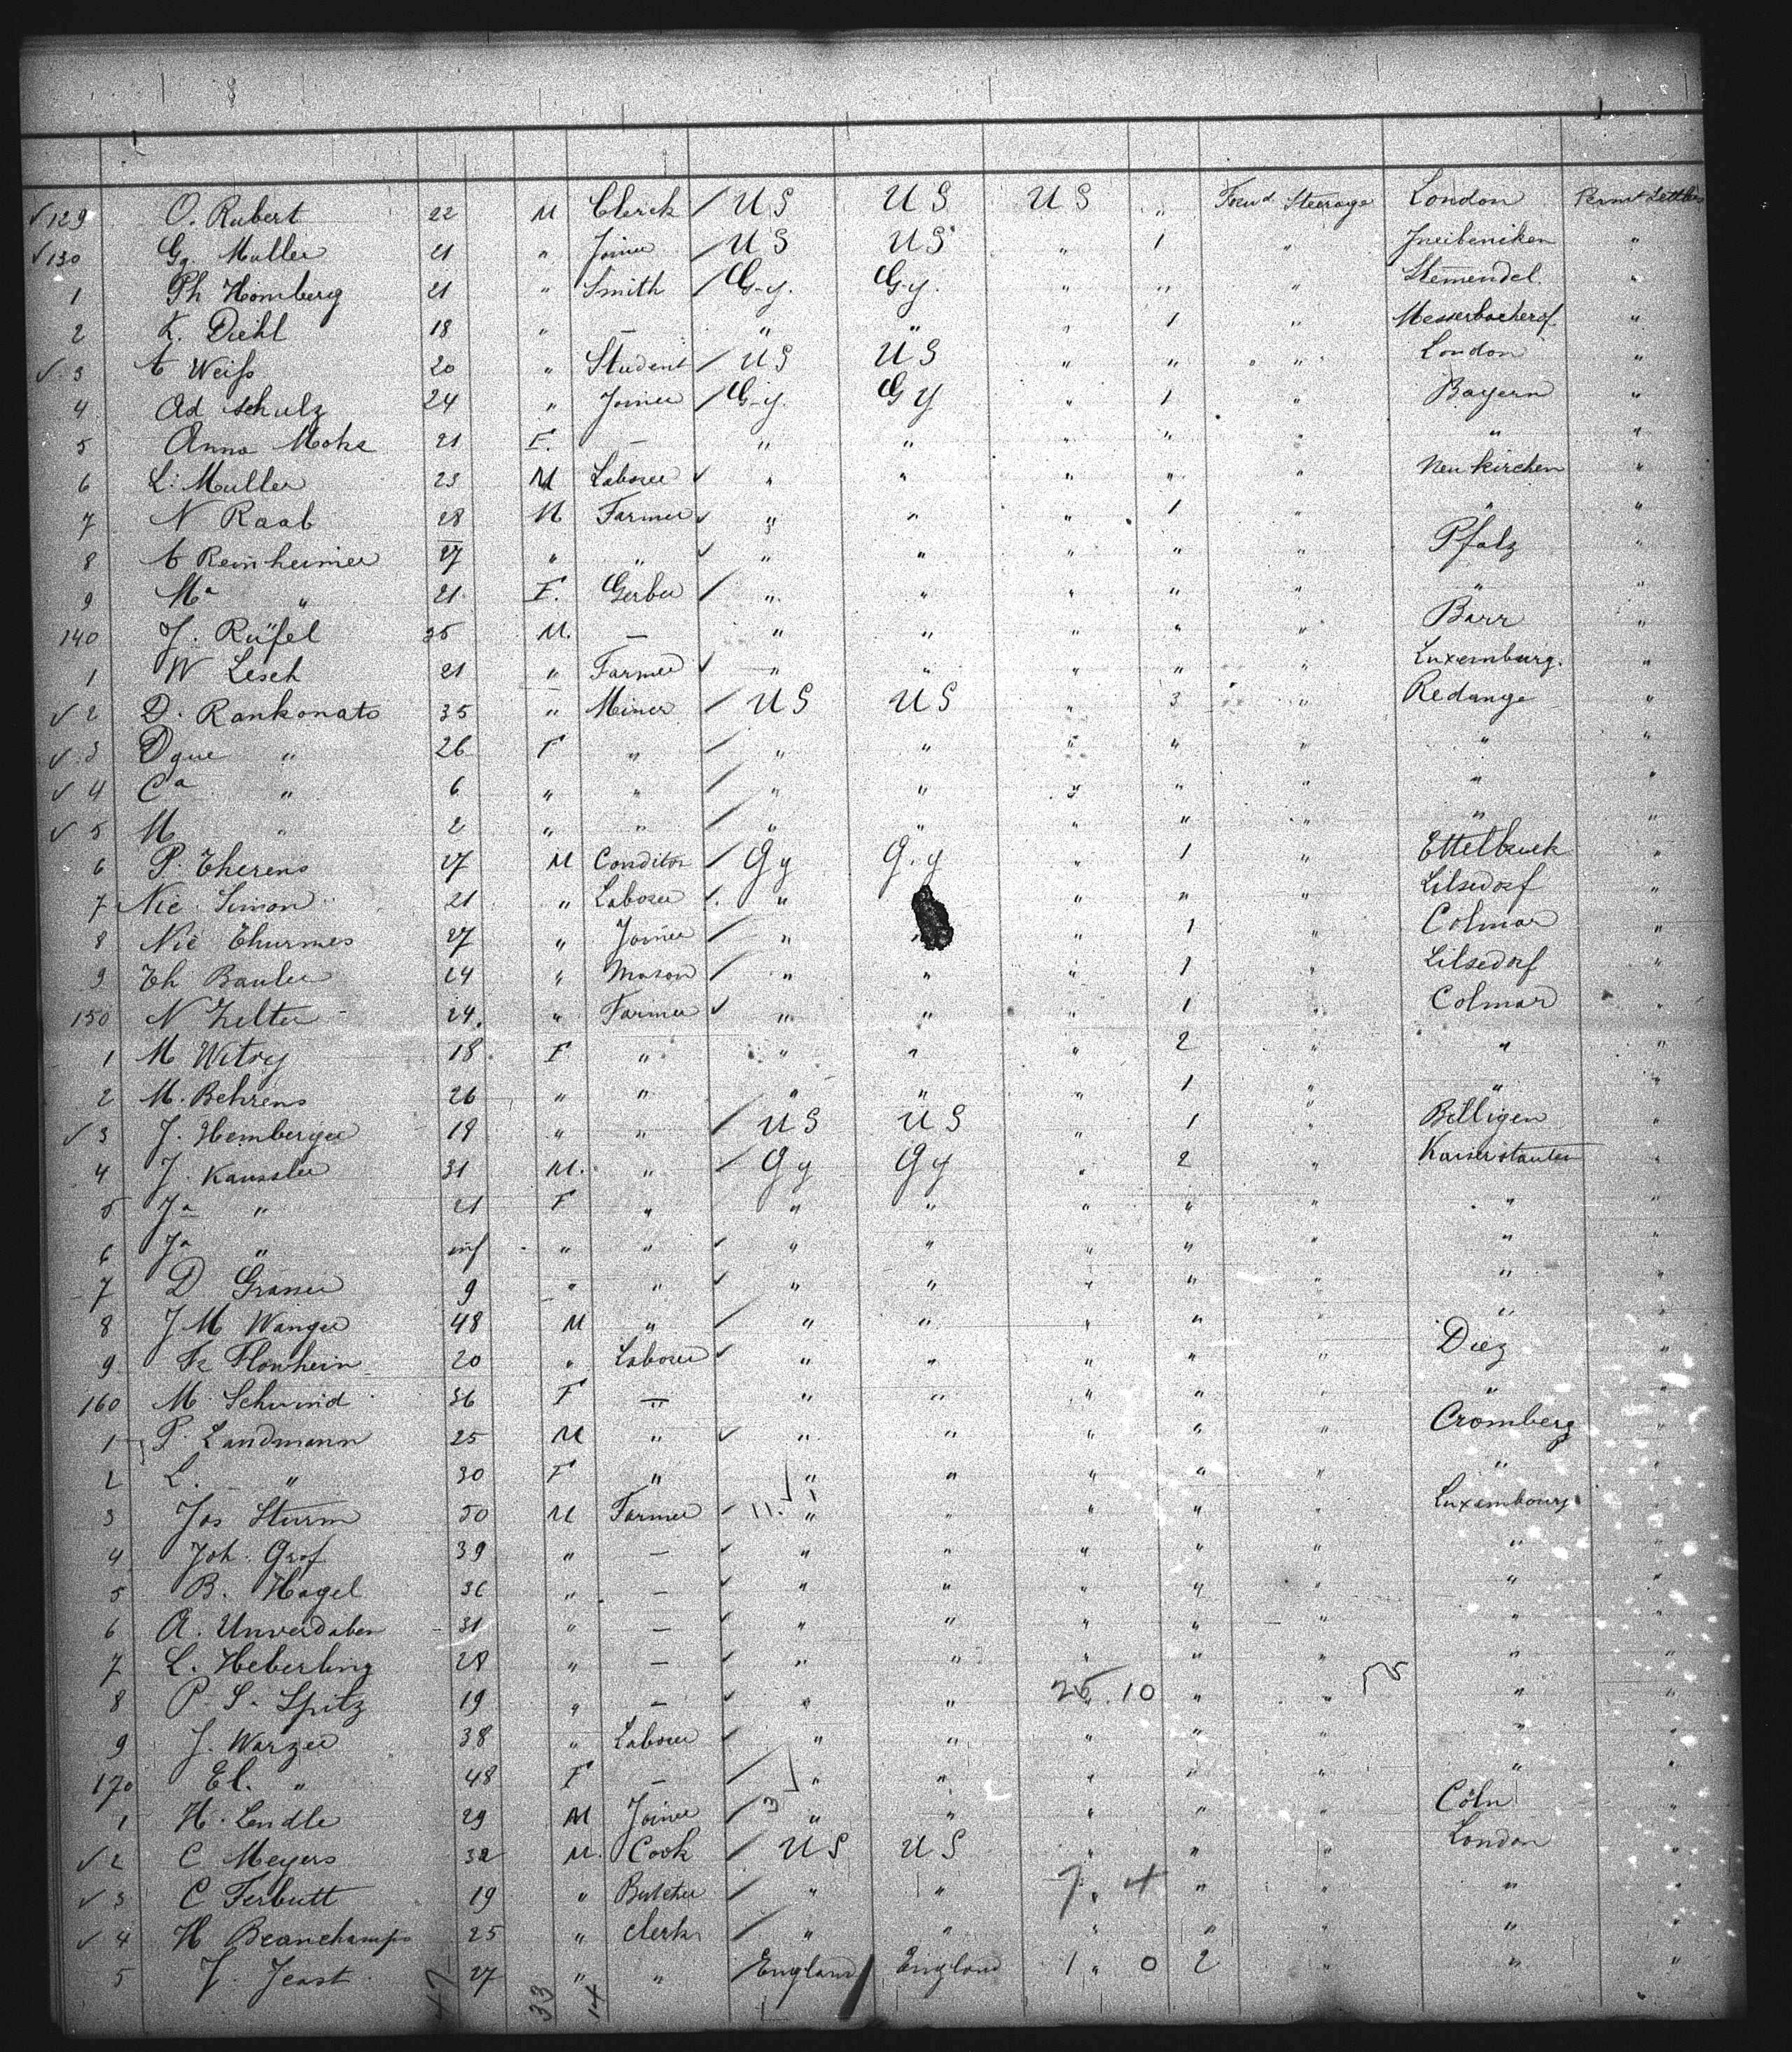 ✓ 129 O. Rubert 22 M Clerck / US US US " Forwd Steerage London Permt Settlers
✓ 130 Gg. Muller 21 " Joiner / US US " 1 " "
1 Ph Homberg 21 " Smith / G-y. G-y. " " " Stemendel "
2 K. Diehl 18 " — " " " 1 " "
✓ 3 A Weiss 20 " Student / US US " " " " London "
4 Ad Schulz 24 " Joiner / G-y. G y " 1 " Bayern "
5 Anna Mohr 21 F. — " " " " " " "
6 L. Muller 23 M Laborer ✓ " " " " " Neukirchen "
7 N Raab 28 M Farmer ✓ " " " 1 " " "
8 A Reinheimer 27 " " ✓ " " " " " Pfalz "
9 Ma " 21 F. Gerber / " " " " " " "
140 J. Rüfel 35 M. — " " " " " Barr "
1 W Lesch 21 " Farmer ✓ " " " " " Luxemburg. "
✓ 2 D. Rankonato 35 " Miner / US US " 3 " Redange "
✓ 3 Dque " 26 F " / " " " " " " "
✓ 4 Ca " 6 " " / " " " " " "
✓ 5 M " 2 " " / " " " " " " "
6 P. Therens 27 M Conditor / Gy G.y " 1 " Ettelbruck "
7 Nic Simon 21 " Laborer ✓ " " " " Lilsdorf "
8 Nic Thurmes 27 " Joiner / " " 1 " Colmar "
9 Th Bauler 24 " Mason / " " " 1 " Lilsdorf "
150 N Zelter 24 " Farmer ✓ " " " 1 " Colmar "
1 M Witry 18 F " " " " 2 " " "
2 M. Behrens 26 " " " " " 1 " " "
✓ 3 J. Hemberger 19 " " / US US " 1 " Billigen "
4 J. Kaussler 31 M. " / Gy Gy " 2 " Kaiserslautern "
5 Ja " 21 F " " " " " " " "
6 Ja " inf " " ✓ " " " " " "
7 D Grasser 9 " " ✓ " " " " " " "
8 J M Wanger 48 M " / " " " " " " "
9 Fr Flonhein 20 " Laborer ✓ " " " " " Diez "
160 M. Schwind 36 F — " " " " " " "
1 P. Landmann 25 M " ✓ " " " " " Cromberg "
2 L. " 30 F " " " " " " " "
3 Jos Sturm 50 M Farmer / 11. " " " " " Luxembourg
4 Joh. Graf 39 " — ✓ " " " " " "
5 B. Hagel 36 " — ✓ " " " " " " "
6 A. Unverdaben 31 " — ✓ " " " " " " "
7 L. Heberling 28 " — ✓ " " " " " " "
8 P. S. Spitz 19 " — ✓ " " 25 " 10 " " "
9 J. Warzer 38 " Laborer ✓ " " " " " " "
170 El. " 48 F — / " " " " " " "
1 H. Lendle 29 M Joiner / 3 " " " " " Cöln "
✓ 2 C Meyers 32 M. Cook / US US " " " London "
✓ 3 C Ferbutt 19 " Butcher / " " 7 " 4 " " " "
✓ 4 H Beauchamps 25 " clerk / " " " " " " "
5 J. Jeast 27 " " / England England 1 " 0 2 " " "
47 33 14